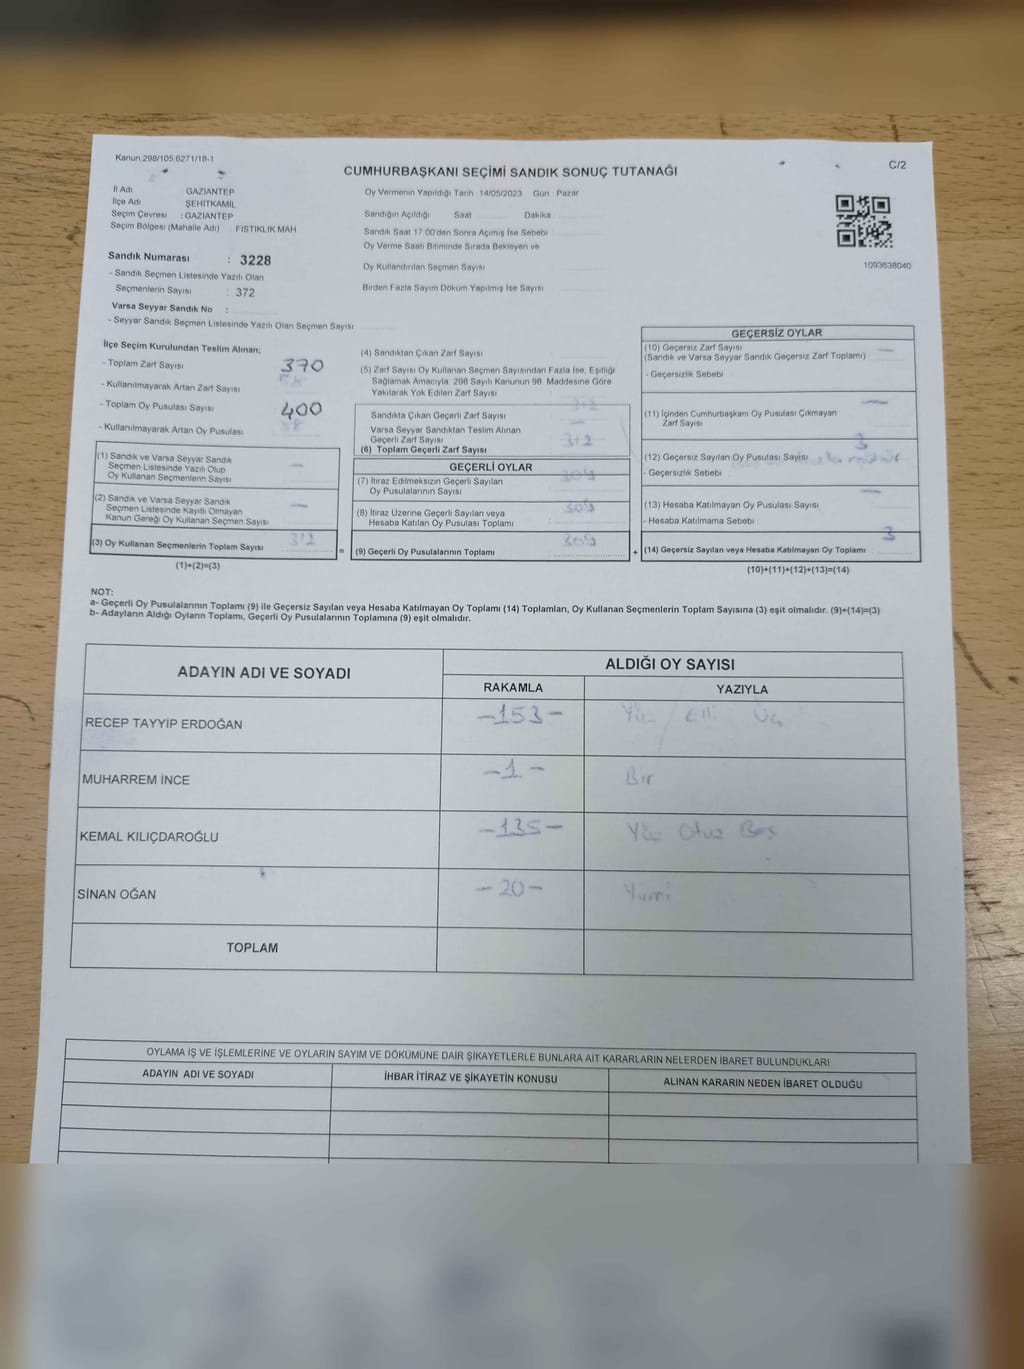 Kanun 298/105,6271/18-1
C/2
CUMHURBAŞKANI SEÇİMİ SANDIK SONUÇ TUTANAĞI
İl Adı GAZİANTEP
İlçe Adı ŞEHİTKAMİL
Seçim Çevresi : GAZİANTEP
Seçim Bölgesi (Mahalle Adı) FISTIKLIK MAH
Sandık Numarası : 3228
- Sandık Seçmen Listesinde Yazılı Olan
Seçmenlerin Sayısı : 372
Varsa Seyyar Sandık No :
- Seyyar Sandık Seçmen Listesinde Yazılı Olan Seçmen Sayısı
Oy Vermenin Yapıldığı Tarih 14/05/2023 Gün : Pazar
Sandığın Açıldığı Saat Dakika
Sandık Saat 17:00'den Sonra Açımış İse Sebebi
Oy Verme Saati Bitiminde Sırada Bekleyen ve
Oy Kullandırılan Seçmen Sayısı
Birden Fazla Sayım Döküm Yapılmış İse Sayısı
1093638040
İlçe Seçim Kurulundan Teslim Alınan;
- Toplam Zarf Sayısı 370
- Kullanılmayarak Artan Zarf Sayısı
- Toplam Oy Pusulası Sayısı 400
- Kullanılmayarak Artan Oy Pusulası 88
(1) Sandık ve Varsa Seyyar Sandık
Seçmen Listesinde Yazılı Olup
Oy Kullanan Seçmenlerin Sayısı —
(2) Sandık ve Varsa Seyyar Sandık
Seçmen Listesinde Kayıtlı Olmayan
Kanun Gereği Oy Kullanan Seçmen Sayısı —
(3) Oy Kullanan Seçmenlerin Toplam Sayısı 312
(1)+(2)=(3)
=
(4) Sandıktan Çıkan Zarf Sayısı
(5) Zarf Sayısı Oy Kullanan Seçmen Sayısından Fazla İse, Eşitliği
Sağlamak Amacıyla, 298 Sayılı Kanunun 98. Maddesine Göre
Yakılarak Yok Edilen Zarf Sayısı
Sandıkta Çıkan Geçerli Zarf Sayısı 312
Varsa Seyyar Sandıktan Teslim Alınan
Geçerli Zarf Sayısı —
(6) Toplam Geçerli Zarf Sayısı 312
GEÇERLİ OYLAR
(7) İtiraz Edilmeksizin Geçerli Sayılan
Oy Pusulalarının Sayısı 309
(8) İtiraz Üzerine Geçerli Sayılan veya
Hesaba Katılan Oy Pusulası Toplamı 309
(9) Geçerli Oy Pusulalarının Toplamı 309
+
GEÇERSİZ OYLAR
(10) Geçersiz Zarf Sayısı
(Sandık ve Varsa Seyyar Sandık Geçersiz Zarf Toplamı) —
- Geçersizlik Sebebi
(11) İçinden Cumhurbaşkanı Oy Pusulası Çıkmayan
Zarf Sayısı —
(12) Geçersiz Sayılan Oy Pusulası Sayısı 3
- Geçersizlik Sebebi
(13) Hesaba Katılmayan Oy Pusulası Sayısı —
- Hesaba Katılmama Sebebi
(14) Geçersiz Sayılan veya Hesaba Katılmayan Oy Toplamı 3
(10)+(11)+(12)+(13)=(14)
NOT:
a- Geçerli Oy Pusulalarının Toplamı (9) ile Geçersiz Sayılan veya Hesaba Katılmayan Oy Toplamı (14) Toplamları, Oy Kullanan Seçmenlerin Toplam Sayısına (3) eşit olmalıdır. (9)+(14)=(3)
b- Adayların Aldığı Oyların Toplamı, Geçerli Oy Pusulalarının Toplamına (9) eşit olmalıdır.
ADAYIN ADI VE SOYADI
ALDIĞI OY SAYISI
RAKAMLA YAZIYLA
RECEP TAYYİP ERDOĞAN -153- Yüz Elli Üç
MUHARREM İNCE -1- Bir
KEMAL KILIÇDAROĞLU -135- Yüz Otuz Beş
SİNAN OĞAN -20- Yirmi
TOPLAM
OYLAMA İŞ VE İŞLEMLERİNE VE OYLARIN SAYIM VE DÖKÜMÜNE DAİR ŞİKAYETLERLE BUNLARA AİT KARARLARIN NELERDEN İBARET BULUNDUKLARI
ADAYIN ADI VE SOYADI İHBAR İTİRAZ VE ŞİKAYETİN KONUSU ALINAN KARARIN NEDEN İBARET OLDUĞU